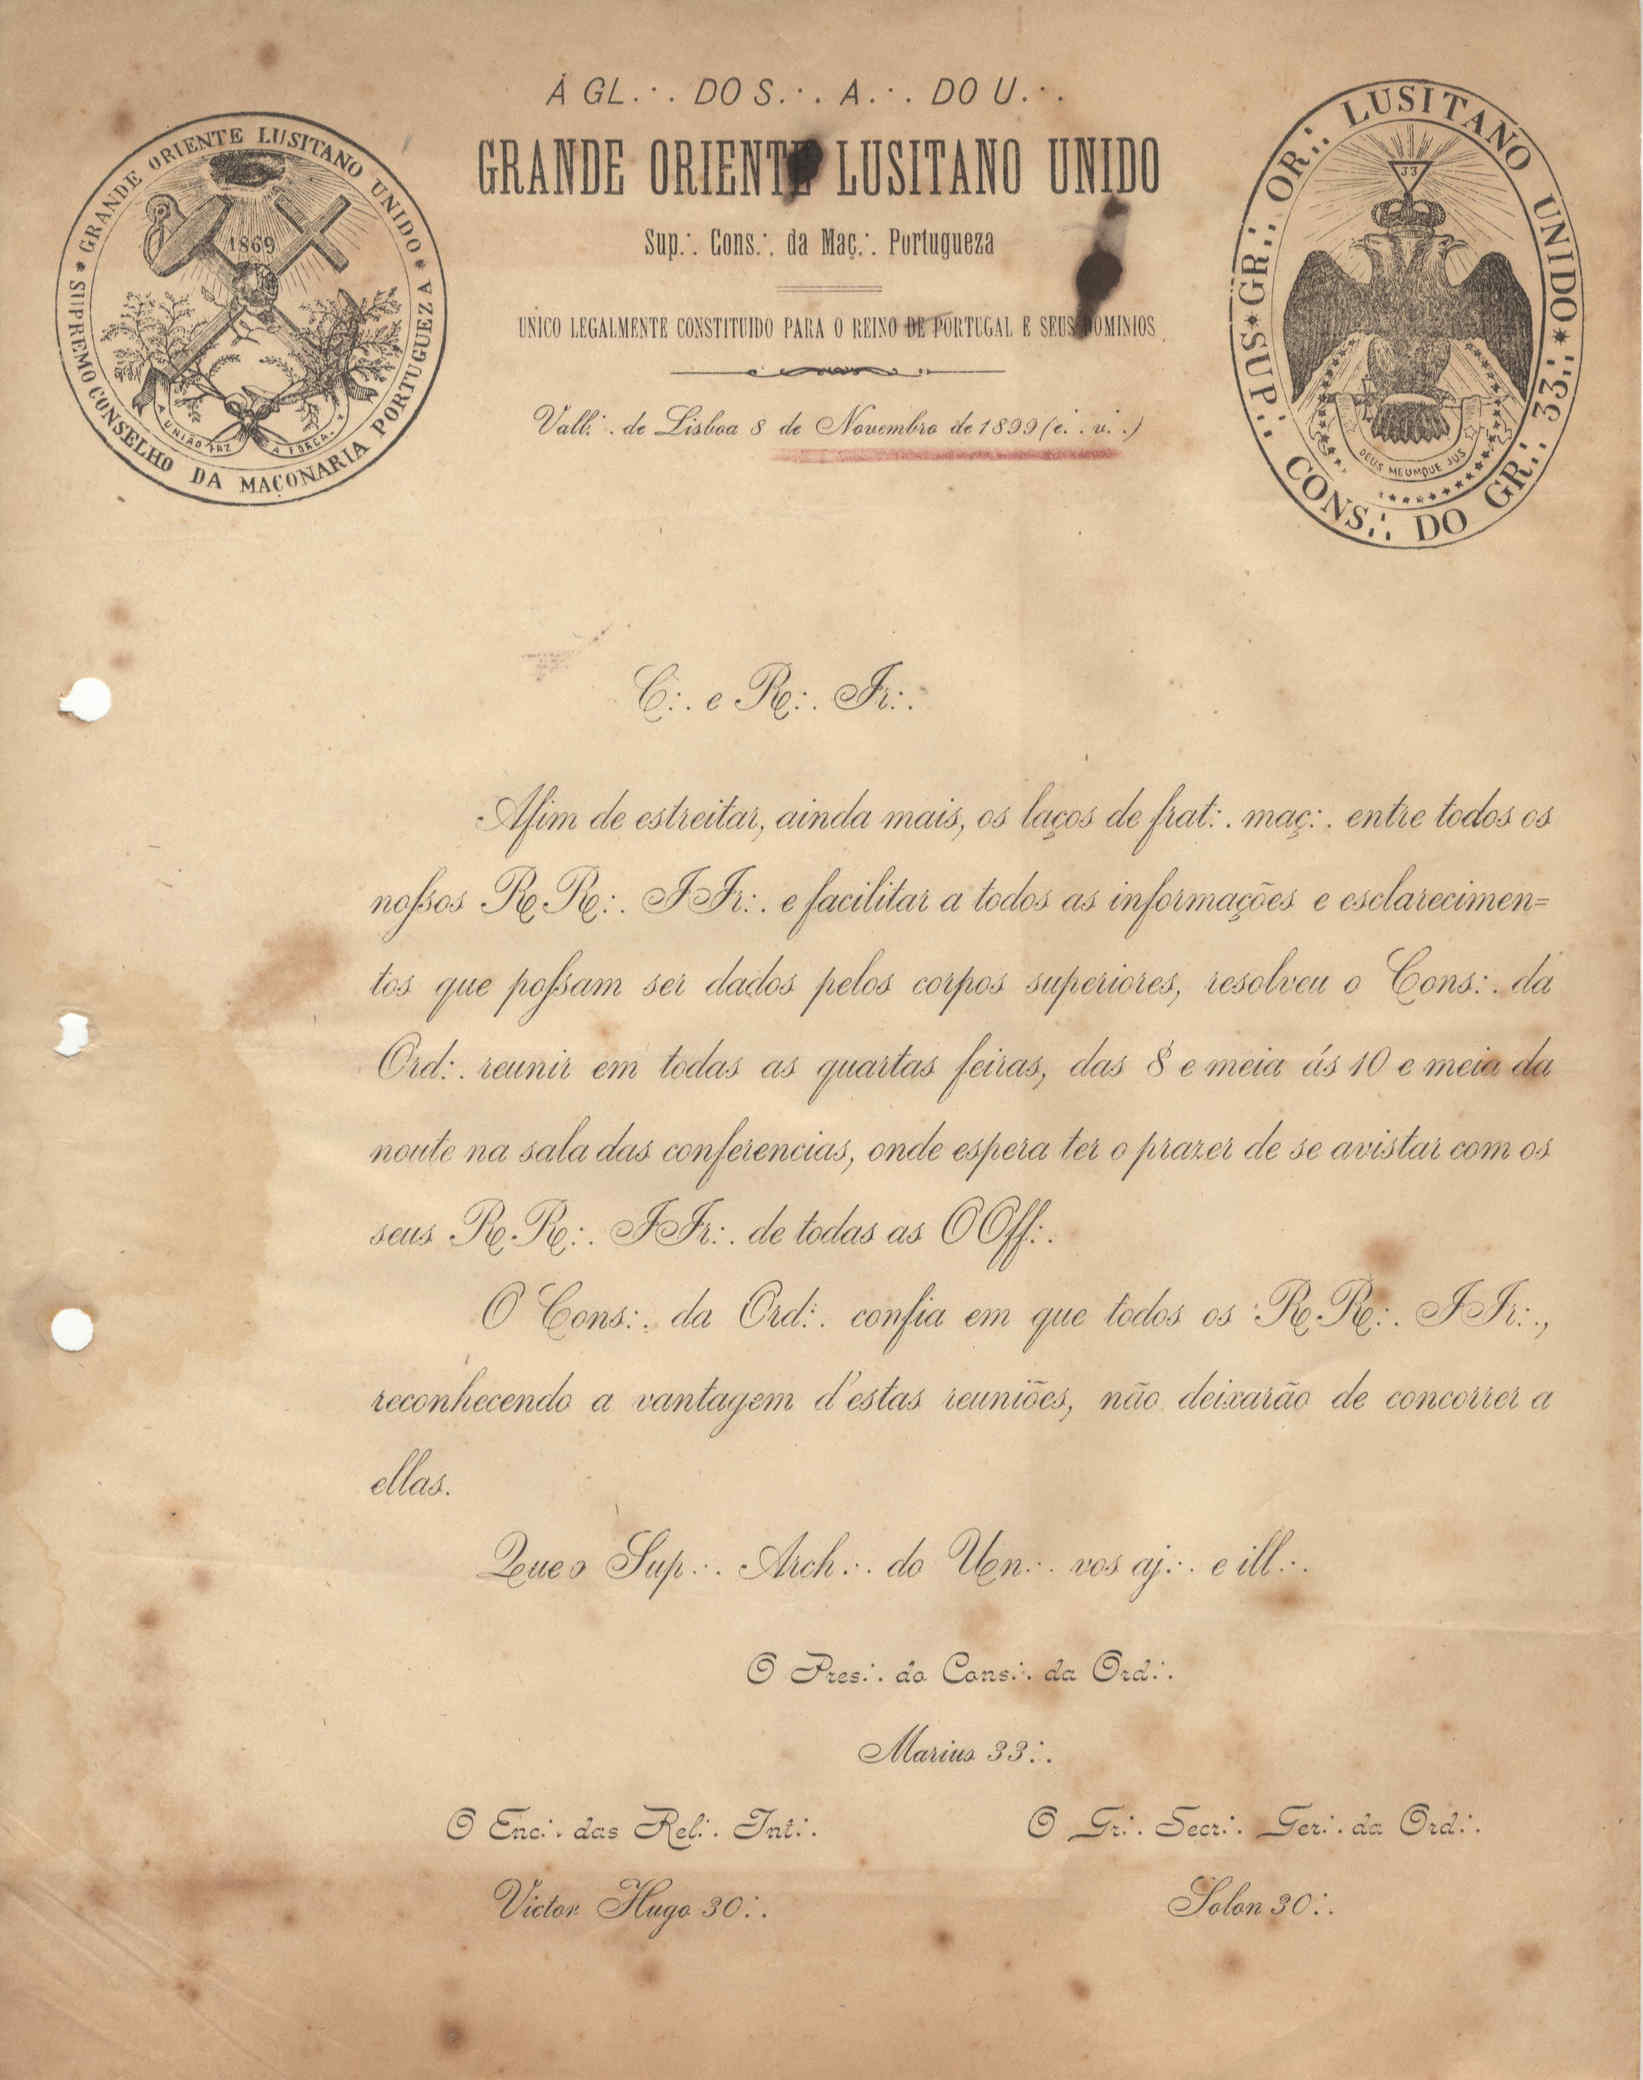 À GL.·. DO S.·. A.·. DO U.·.
GRANDE ORIENTE LUSITANO UNIDO
Sup.·. Cons.·. da Maç.·. Portugueza
UNICO LEGALMENTE CONSTITUIDO PARA O REINO DE PORTUGAL E SEUS DOMINIOS
Vall.·. de Lisboa 8 de Novembro de 1899 (e.·. v.·.)
* GRANDE ORIENTE LUSITANO UNIDO *
SUPREMO CONSELHO DA MAÇONARIA PORTUGUEZA
1869
A UNIÃO FAZ A FORÇA
* GR.·. OR.·. LUSITANO UNIDO *
SUP.·. CONS.·. DO GR.·. 33.·.
33
DEUS MEUMQUE JUS
C.·. e R.·. Ir.·.
Afim de estreitar, ainda mais, os laços de frat.·. maç.·. entre todos os
nossos RR.·. IIr.·. e facilitar a todos as informações e esclarecimen=
tos que possam ser dados pelos corpos superiores, resolveu o Cons.·. da
Ord.·. reunir em todas as quartas feiras, das 8 e meia ás 10 e meia da
noute na sala das conferencias, onde espera ter o prazer de se avistar com os
seus RR.·. IIr.·. de todas as OOff.·.
O Cons.·. da Ord.·. confia em que todos os RR.·. IIr.·.,
reconhecendo a vantagem d'estas reuniões, não deixarão de concorrer a
ellas.
Que o Sup.·. Arch.·. do Un.·. vos aj.·. e ill.·.
O Pres.·. do Cons.·. da Ord.·.
Marius 33.·.
O Enc.·. das Rel.·. Int.·.
O Gr.·. Secr.·. Ger.·. da Ord.·.
Victor Hugo 30.·.
Solon 30.·.